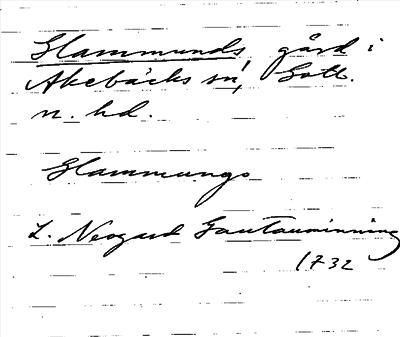 Glammunds, gård i
Akebäcks sn, Gotl.
n. hd.
Glammungs
L. Neogard Gautauminning
1732